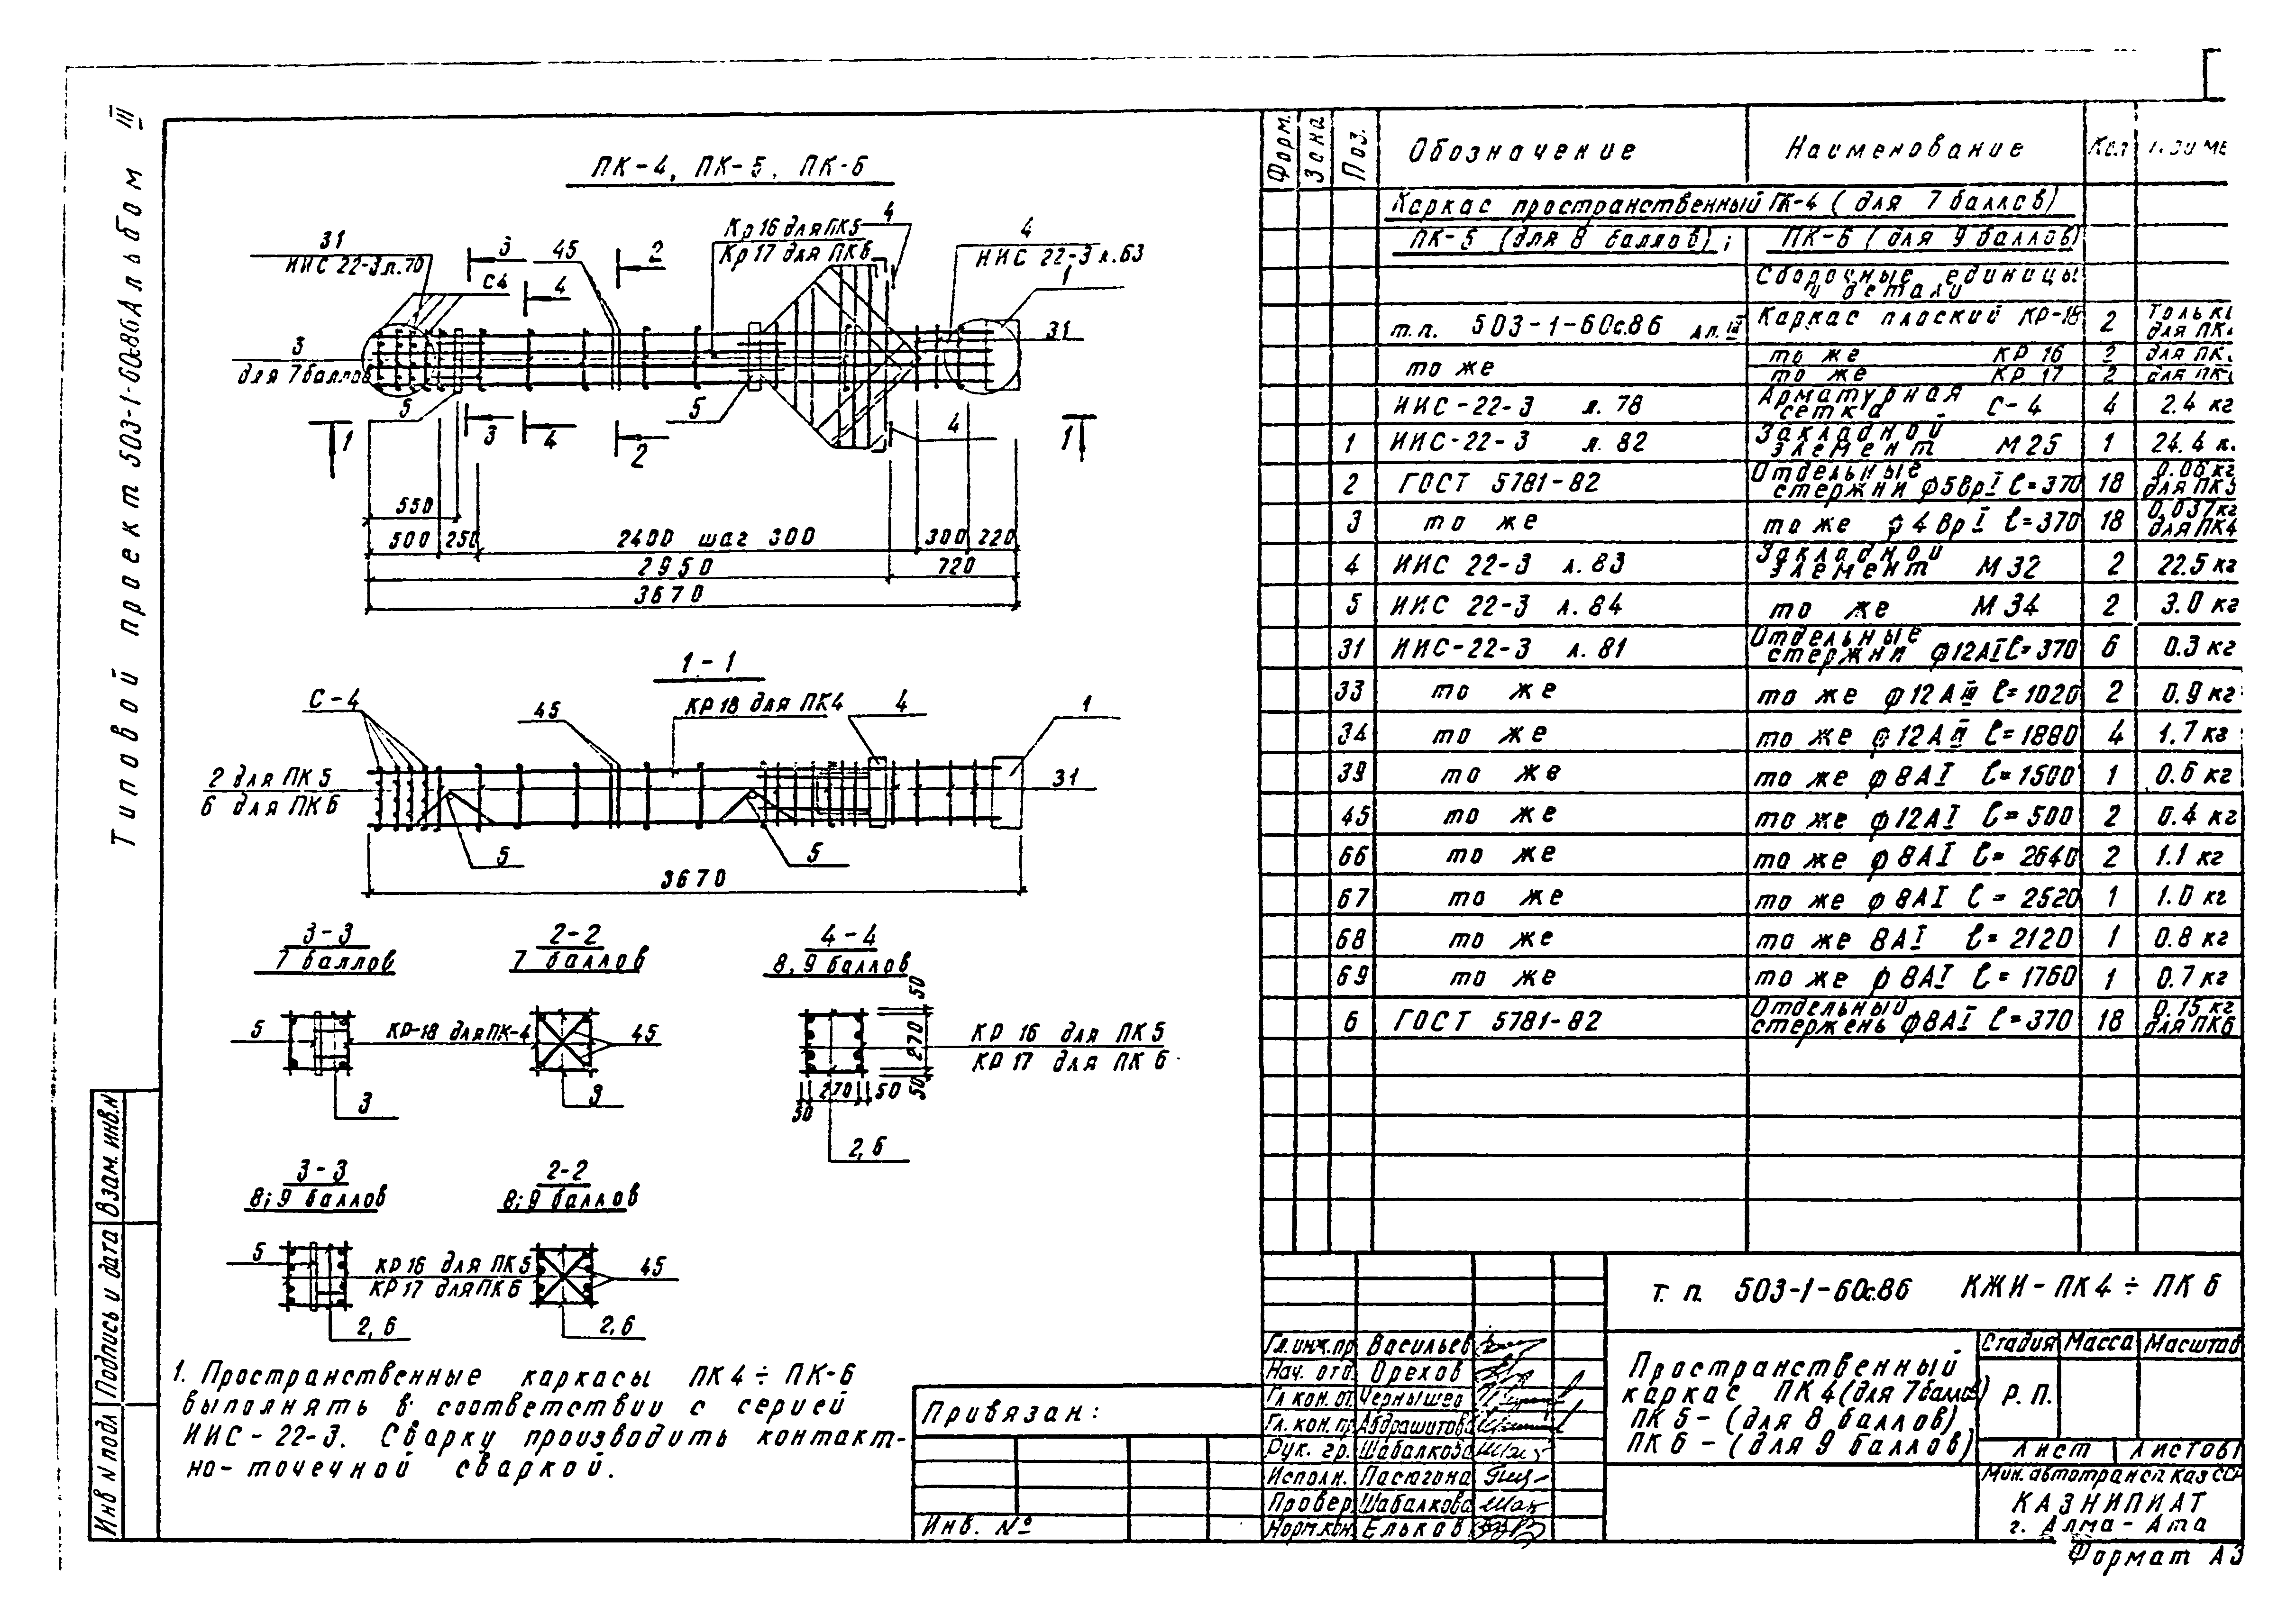 Типовой проект 503-1-60с.86 Альбом III
ПК-4, ПК-5, ПК-6
31
ИИС 22-3 л.70
С4
3
4
45
2
Кр 16 для ПК5
Кр 17 для ПК6
4
4
ИИС 22-3 л.63
1
31
3
для 7 баллов
5
3
4
2
5
4
1
1
550
500
250
2400 шаг 300
300
220
2950
720
3670
1-1
С-4
45
КР 18 для ПК4
4
1
2 для ПК 5
6 для ПК 6
31
5
5
3670
3-3
7 баллов
2-2
7 баллов
4-4
8, 9 баллов
5
КР-18 для ПК-4
45
3
КР 16 для ПК 5
КР 17 для ПК 6
50
270
50
50
270
50
2,6
3-3
8; 9 баллов
2-2
8; 9 баллов
5
КР 16 для ПК 5
КР 17 для ПК 6
45
2,6
2,6
1. Пространственные каркасы ПК 4 ÷ ПК-6
выполнять в соответствии с серией
ИИС-22-3. Сварку производить контакт-
но-точечной сваркой.
Форм. Зона Поз. Обозначение Наименование Кол
Каркас пространственный ПК-4 ( для 7 баллов)
ПК-5 (для 8 баллов); ПК-6 ( для 9 баллов)
Сборочные единицы
и детали
т.п. 503-1-60с.86 Ал. III Каркас плоский КР-18 2
то же то же КР 16 2
то же КР 17 2
ИИС-22-3 л. 78 Арматурная сетка С-4 4 2.4 кг
1 ИИС-22-3 л. 82 Закладной элемент М 25 1 24.4 к.
2 ГОСТ 5781-82 Отдельные стержни ф5ВрI ℓ=370 18 0.06 кг для ПК5
3 то же то же ф 4 ВрI ℓ=370 18 0,037кг для ПК4
4 ИИС 22-3 л. 83 Закладной элемент М 32 2 22.5 кг
5 ИИС 22-3 л. 84 то же М 34 2 3.0 кг
31 ИИС-22-3 л. 81 Отдельные стержни ф12АI ℓ=370 6 0.3 кг
33 то же то же ф 12 АIII ℓ=1020 2 0.9 кг
34 то же то же ф 12 АIII ℓ=1880 4 1.7 кг
39 то же то же ф 8АI ℓ=1500 1 0.6 кг
45 то же то же ф12АI ℓ=500 2 0.4 кг
66 то же то же ф 8АI ℓ= 2640 2 1.1 кг
67 то же то же ф 8АI ℓ = 2520 1 1.0 кг
68 то же то же 8АI ℓ=2120 1 0.8 кг
69 то же то же ф 8АI ℓ=1760 1 0.7 кг
6 ГОСТ 5781-82 Отдельный стержень ф8АI ℓ=370 18 0.15 кг для ПК6
т. п. 503-1-60с.86 КЖИ-ПК4 ÷ ПК 6
Гл.инж.пр Васильев
Нач. отд. Орехов
Гл кон. от. Чернышев
Гл. кон. пр. Абдрашитова
Рук. гр. Шабалкова
Исполн. Пасюгона
Провер Шабалкова
Норм.кон. Ельков
Пространственный
каркас ПК 4 (для 7 баллов)
ПК 5 - (для 8 баллов)
ПК 6 - (для 9 баллов)
Стадия Масса Масштаб
Р. П.
Лист Листов 1
Мин. автотрансп. Каз ССР
КАЗНИПИАТ
г. Алма-Ата
Формат А3
Привязан:
Инв. №
Взам. инв. N
Подпись и дата
Инв N подл